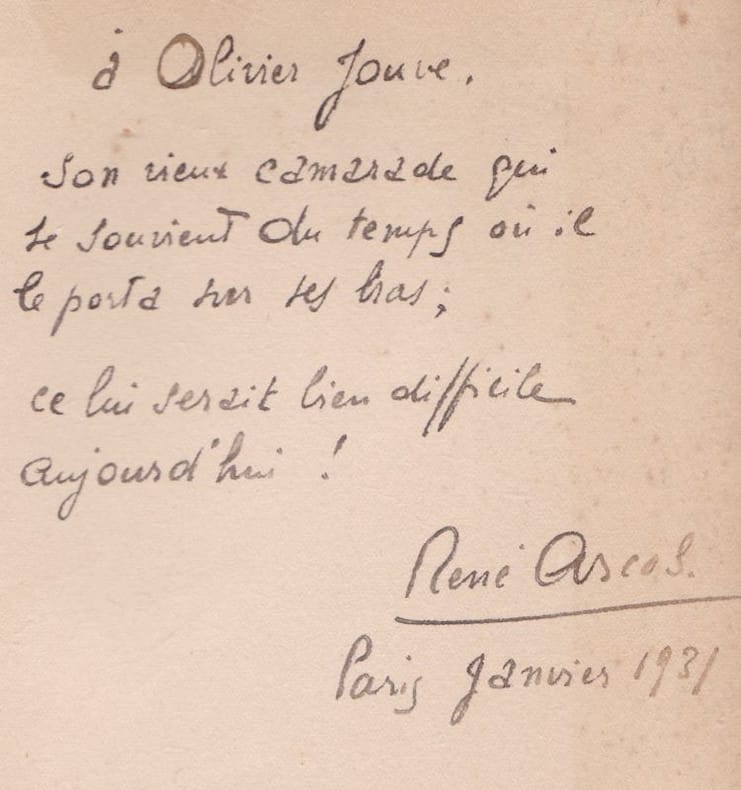 à Olivier Jouve.
son vieux camarade qui
se souvient du temps où il
le porta sur ses bras ;
ce lui serait bien difficile
aujourd'hui !
René Arcos.
Paris Janvier 1931